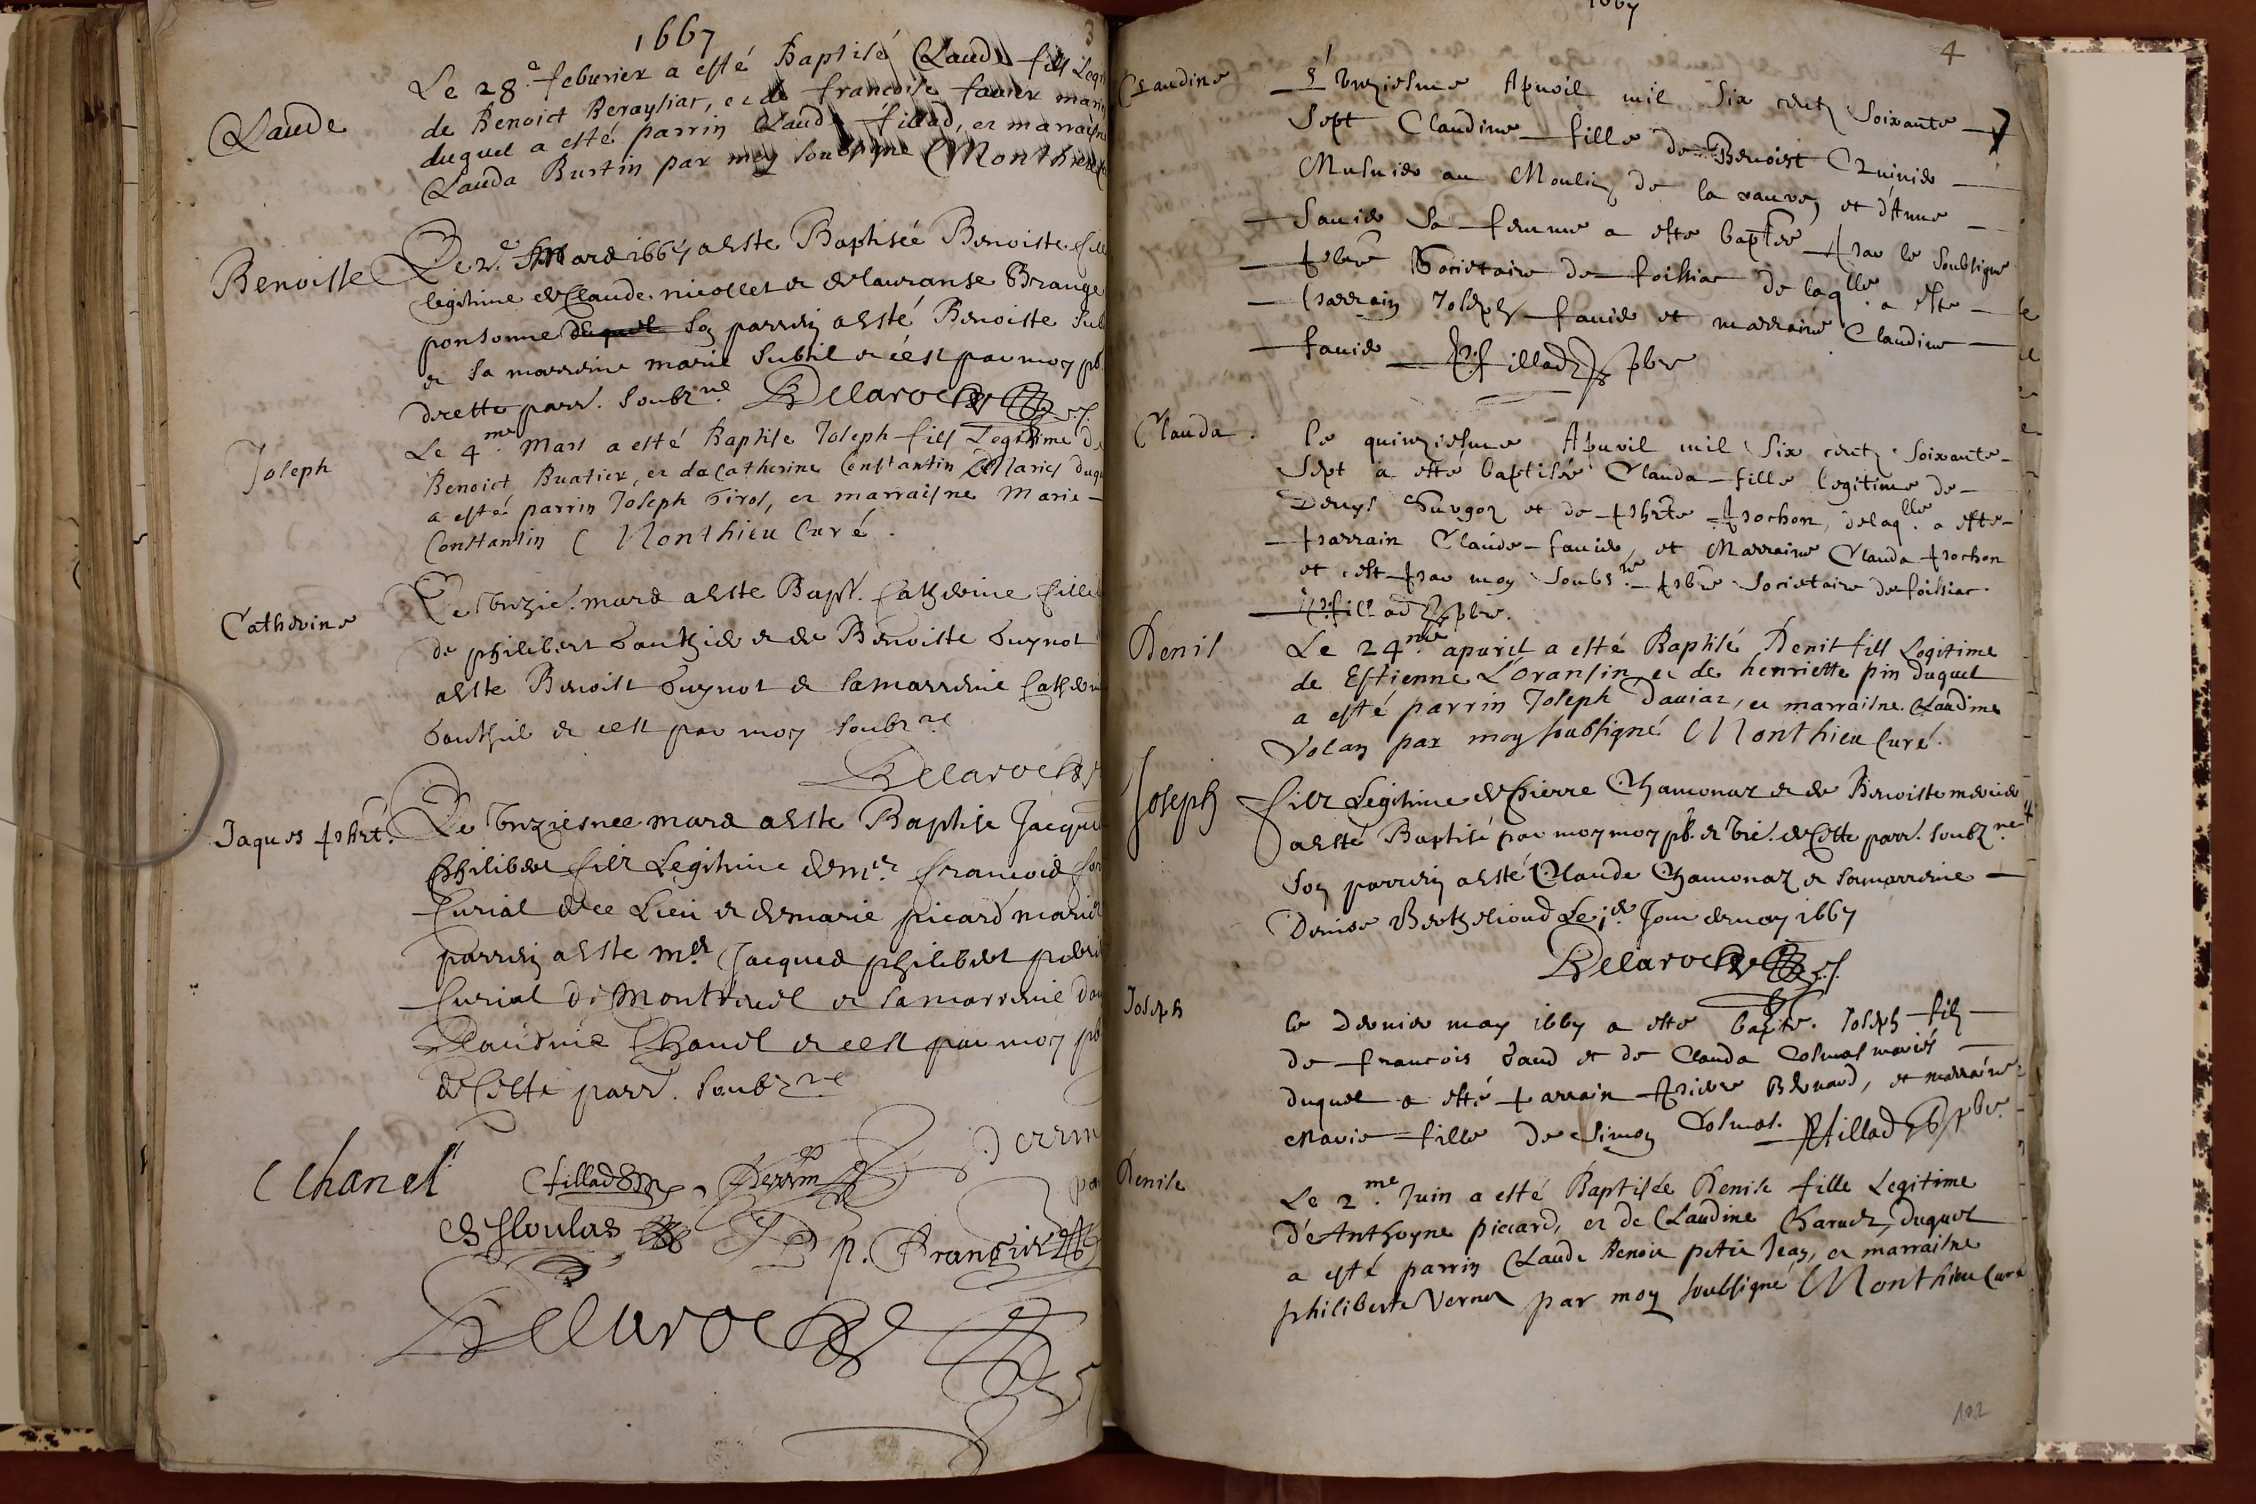 1667
3
Claude
Le 28e feburier a esté Baptisé Claude fils Legi
de Benoict Beraysiat, et de francoise fauier mari
duquel a esté parrin Claude fillad, et marraisne
Clauda Burtin par moy soubsigné C Monthieu
Benoiste
Le 2e Mars 1667 a este Baptiséé Benoiste fille
legitime de Claude nicollet et de lauranse Brange
ponsonne duquel son parrin a esté Benoiste sub
et sa marreine marie subtil et c'est par moy pb
de cette parr. soubzne Delaroche
Joseph
Le 4me Mars a esté Baptise Joseph fils Legitime de
Benoict Buatier, et de Catherine Constantin Mariés duqu
a esté parrin Joseph Girod, et marraisne Marie
Constantin C Monthieu Curé.
Catherine
Le Unzie. mars a este Bapt. Catherine fille
de philibert Gauthier et de Benoiste Guynot
a este Benoist Guynot et sa marreine Catherin
Gauthier et c'est par moy soubzne
Delaroche
Jaques phbt.
Le Unziesme mars a este Baptise Jacque
Philibert filz Legitime de mre francois
Curial de ce Lieu et de marie picard mariez
parrein a este mre Jacques philibert
Curial de Montreuel et sa marreine
Claudine Chanel et c'est par moy pb
de Cette parr. soubzne
C Chanel
Cfillad
Perrin
Perrin
p. Francois
Delaroche
1667
4
Claudine
L'unziesme Apuril mil Six centz Soixante
Sept Claudine fille de Benoist
Musnier au Moulin de la et d'Anne
fauier Sa femme a este baptée par le soubsigne
pbre Societaire de foissiat de laqlle a este
parrain Joseph fauier et marraine Claudine
fauier fillad pbre
Clauda.
Le quinziesme Apuril mil Six centz Soixante
Sept a esté baptisée Clauda fille legitime de
Denys Gurgon et de phbte prochon, delaqlle a este
parrain Claude fauier, et Marraine Clauda prochon
et c'est par moy soubsne pbre Societaire de foissiac.
fillad pbre.
Denis
Le 24me apuril a esté Baptisé Denit fils Legitime
de Estienne L'oransin et de henriette pin duquel
a esté parrin Joseph Dauiaz, et marraisne Claudine
Volan par moy soubsigné C Monthieu Curé.
Joseph
filz Legitime de Pierre Chamonaz et de Benoiste mercier
a esté Baptisé par moy moy pb. et vic. de Cette parr. soubzne
Son parrein a esté Claude Chamonaz et sa marreine
Denise Berthelioud Le jer Jour de may 1667
Delaroche
Joseph
le Dernier may 1667 a este bapte. Joseph filz
de francois Daud et de Clauda Colmas mariés
duquel a esté parrain pierre Bernard, et marraine
Marie fille de Simon Colmas. fillad pbre.
Denise
Le 2me Juin a esté Baptisée Denise fille Legitime
D'eAnthoyne piccard, et de Claudine Charnez, duquel
a esté parrin Claude Benoit petit Jean, et marraisne
philiberte Vernes par moy soubsigné C Monthieu Curé
102